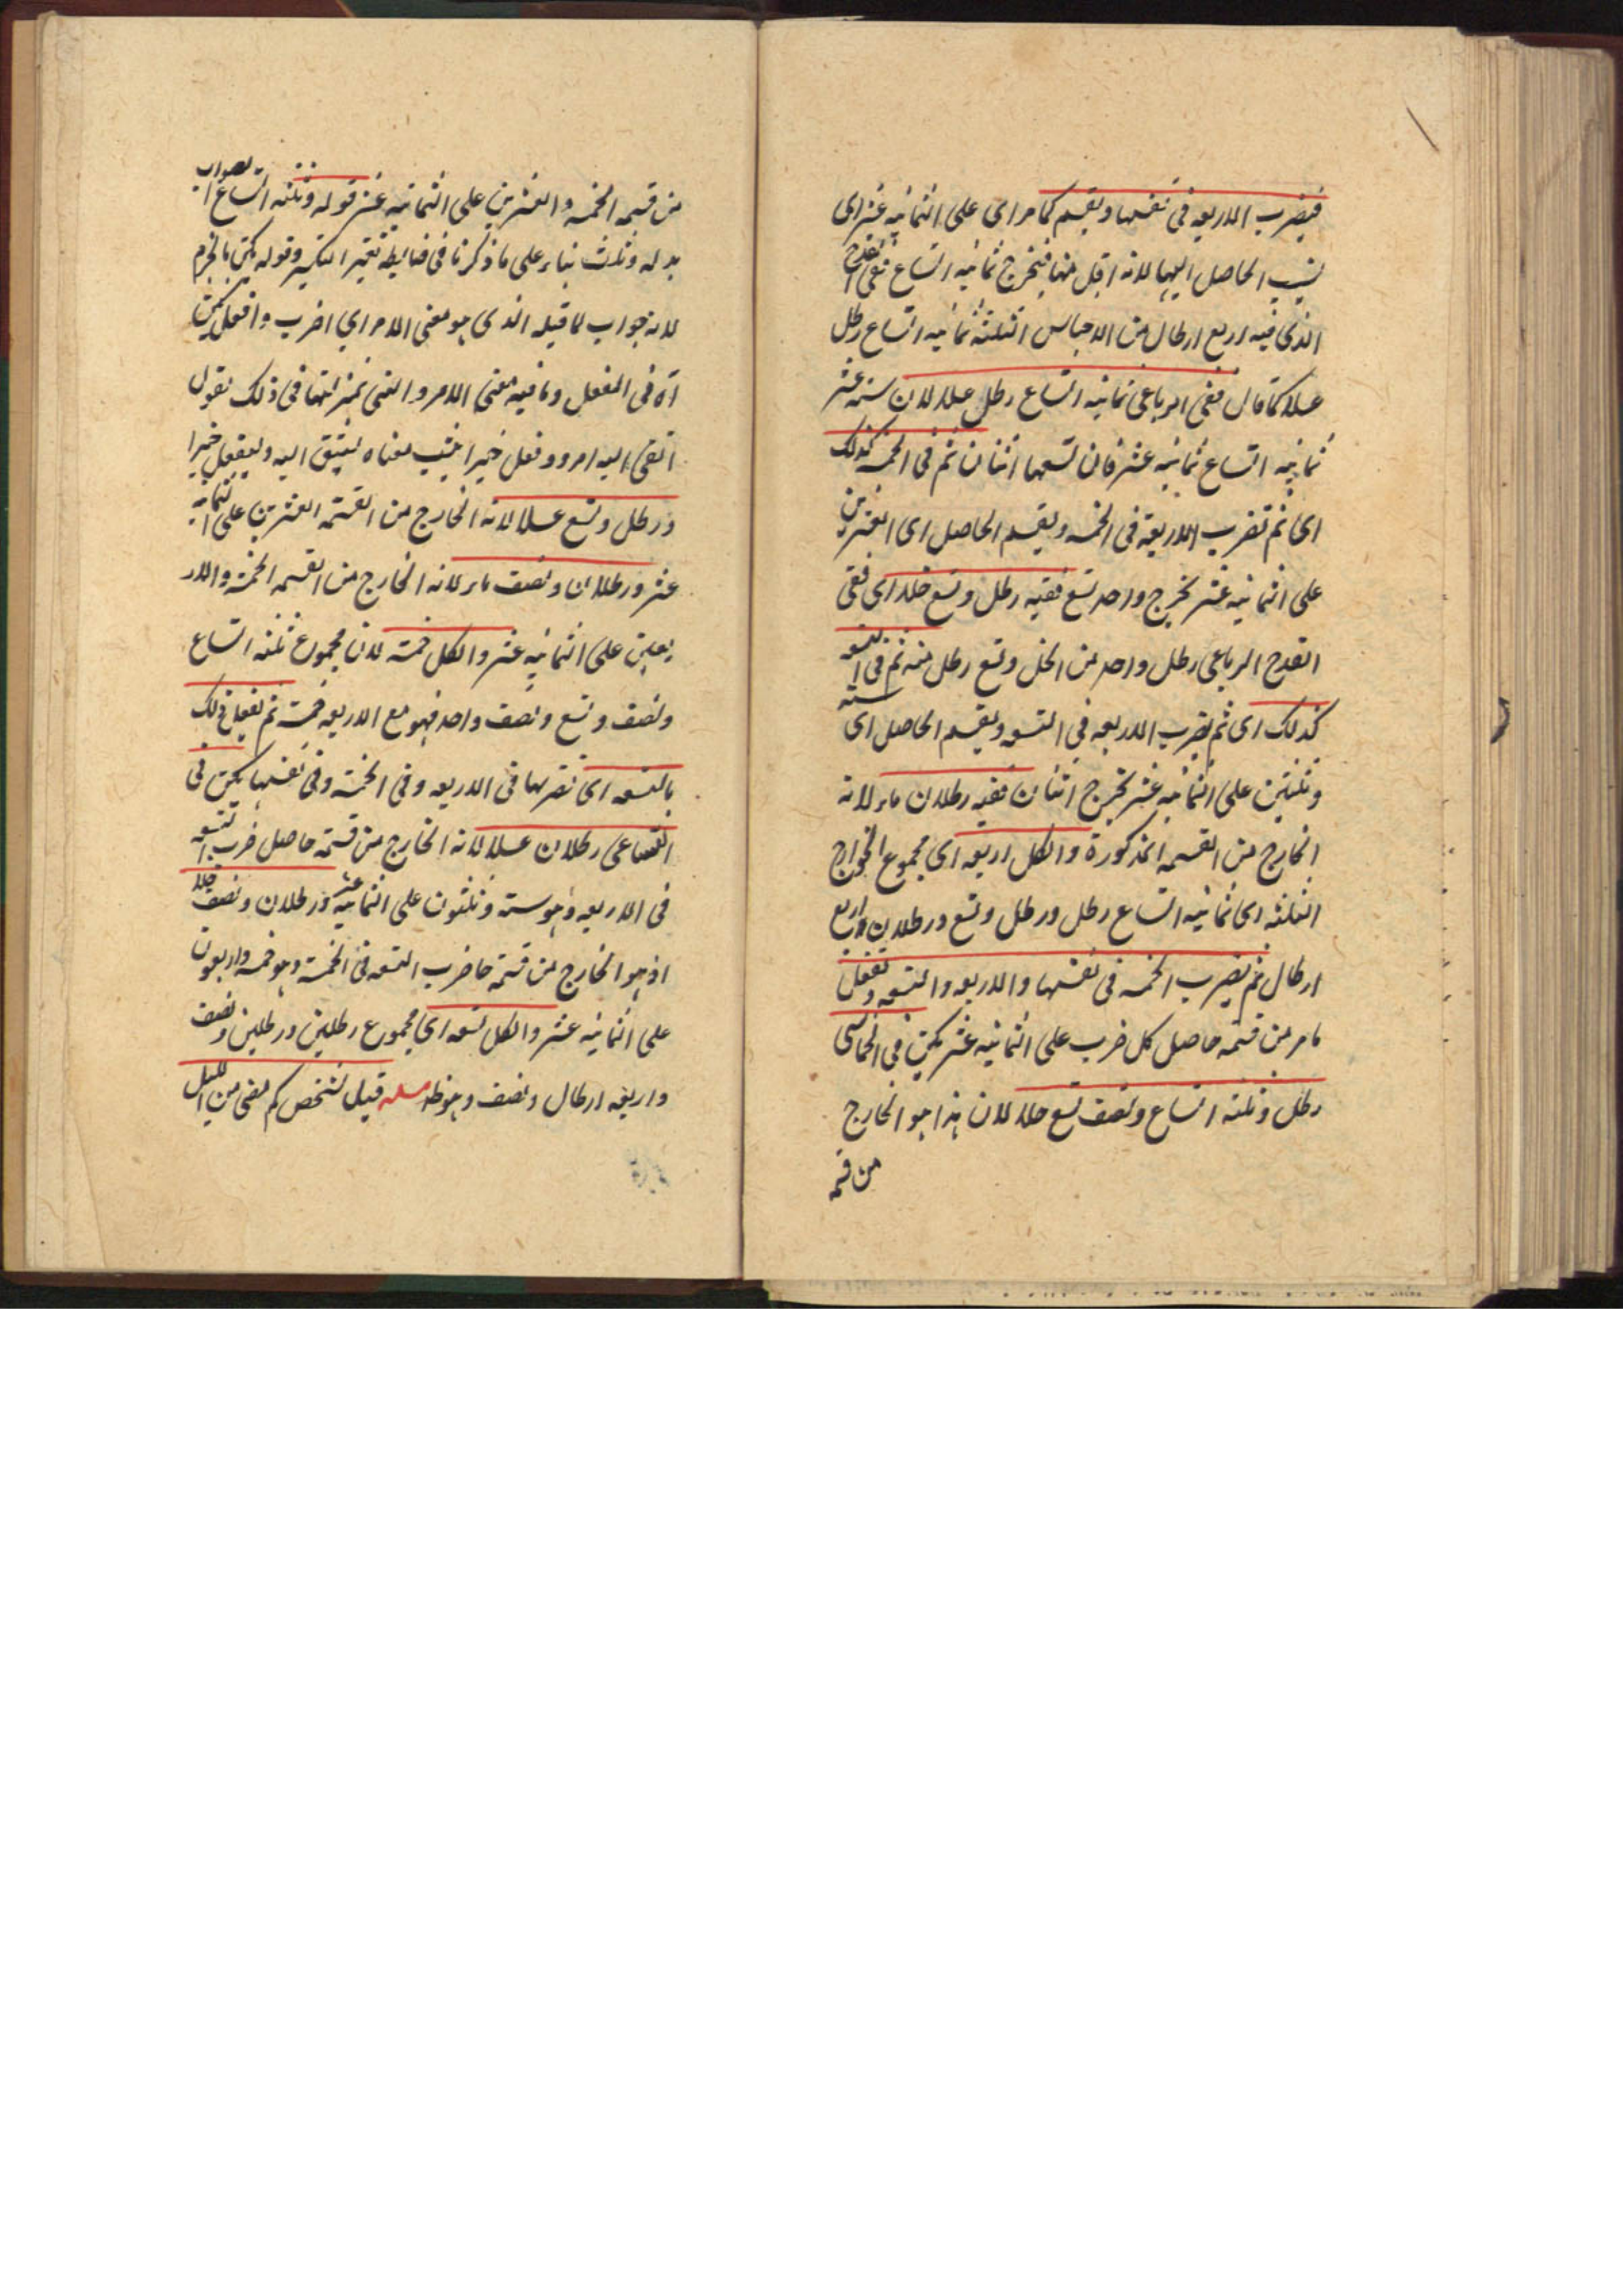 فيضرب الاربعه فى نفسها ويقسم كما مر اى على الثمانيه عشر اى
ينسب الحاصل اليها لانه اقل منها فيخرج ثمانيه اتساع ففى القدح
الذى فيه اربع ارطال من الاجناس الثلثة ثمانيه اتساع رطل
عسلا كما قال ففى الرباعى ثمانيه اتساع رطل عسلا لان ستة عشر
ثمانيه اتساع ثمانيه عشر فان تسعها اثنان ثم فى الخمسه كذلك
اى ثم تضرب الاربعة فى الخمسه ويقسم الحاصل اى العشرين
على الثمانيه عشر يخرج واحد وتسع ففيه رطل وتسع خلا اى ففى
القدح الرباعى رطل واحد من الخل وتسع رطل منه ثم فى التسعه
كذلك اى ثم يضرب الاربعه فى التسعه ويقسم الحاصل اى سته
وثلثين على الثمانيه عشر يخرج اثنان ففيه رطلان ماء لانه
الخارج من القسمه المذكورة والكل اربعه اى مجموع الخوارج
الثلثه اى ثمانيه اتساع رطل ورطل وتسع ورطلان اربع
ارطال ثم يضرب الخمسه فى نفسها والاربعه والتسعه وتفعل
ما مر من قسمه حاصل كل ضرب على الثمانيه عشر يكن فى الخماسى
رطل وثلثه اتساع ونصف تسع خلا لان هذا هو الخارج
من قسمه
من قسمه الخمسه والعشرين على الثمانيه عشر قوله وثلثه اتساع الصواب
بدله وثلث بناء على ما ذكرنا فى ضابطة تغير الكسير وقوله يكن بالجزم
لانه جواب لما قبله الذى هو معنى الامر اي اضرب وافعل يكن
آه فى المفعل وما فيه معنى الامر والنهى بمنزلتها فى ذلك تقول
اتقى الله امرو وفعل خيرا يثب معناه ليتق الله وليفعل خيرا
ورطل وتسع عسلا لانه الخارج من القسمة العشرين على الثمانيه
عشر ورطلان ونصف ماء لانه الخارج من القسمه الخمسة والار
بعين على الثمانيه عشر والكل خمسة لان مجموع ثلثه اتساع
ونصف وتسع ونصف واحد فهو مع الاربعه خمسة ثم تفعل ذلك
بالتسعه اى تضربها فى الاربعه وفى الخمسة وفى نفسها يكن فى
التساعى رطلان عسلا لانه الخارج من قسمة حاصل ضرب التسعه
فى الاربعه وهو سته وثلثون على الثمانيه عشر ورطلان ونصف خلا
اذ هو الخارج من قسمة ما ضرب التسعه فى الخمسة وهو خمسه واربعون
على الثمانيه عشر والكل تسعه اى مجموع رطلين ورطلين ونصف
واربعه ارطال ونصف وهو ظ مسله قيل لشخص كم مضى من الليل